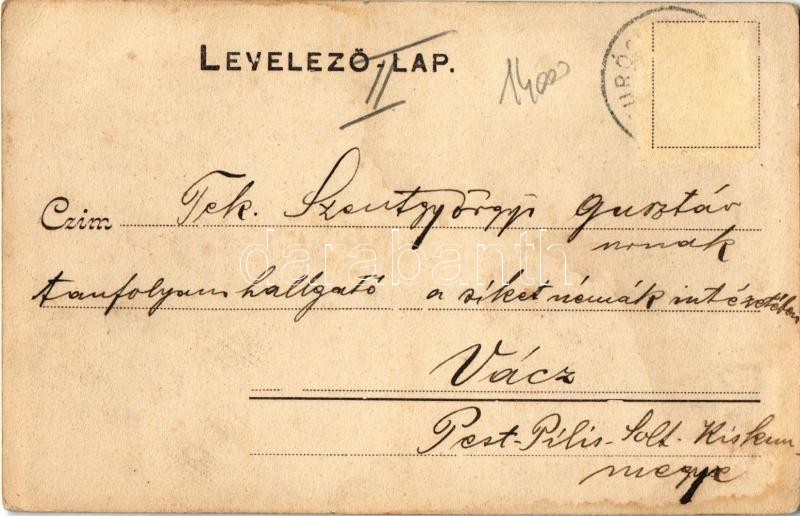 LEVELEZŐ-LAP.
II
14000
URÓ
Czim Tek. Szentgyörgyi Gusztáv
urnak
tanfolyam hallgató a siket némák intézetében
Vácz
Pest-Pilis-Solt-Kiskun
megye
darabanth